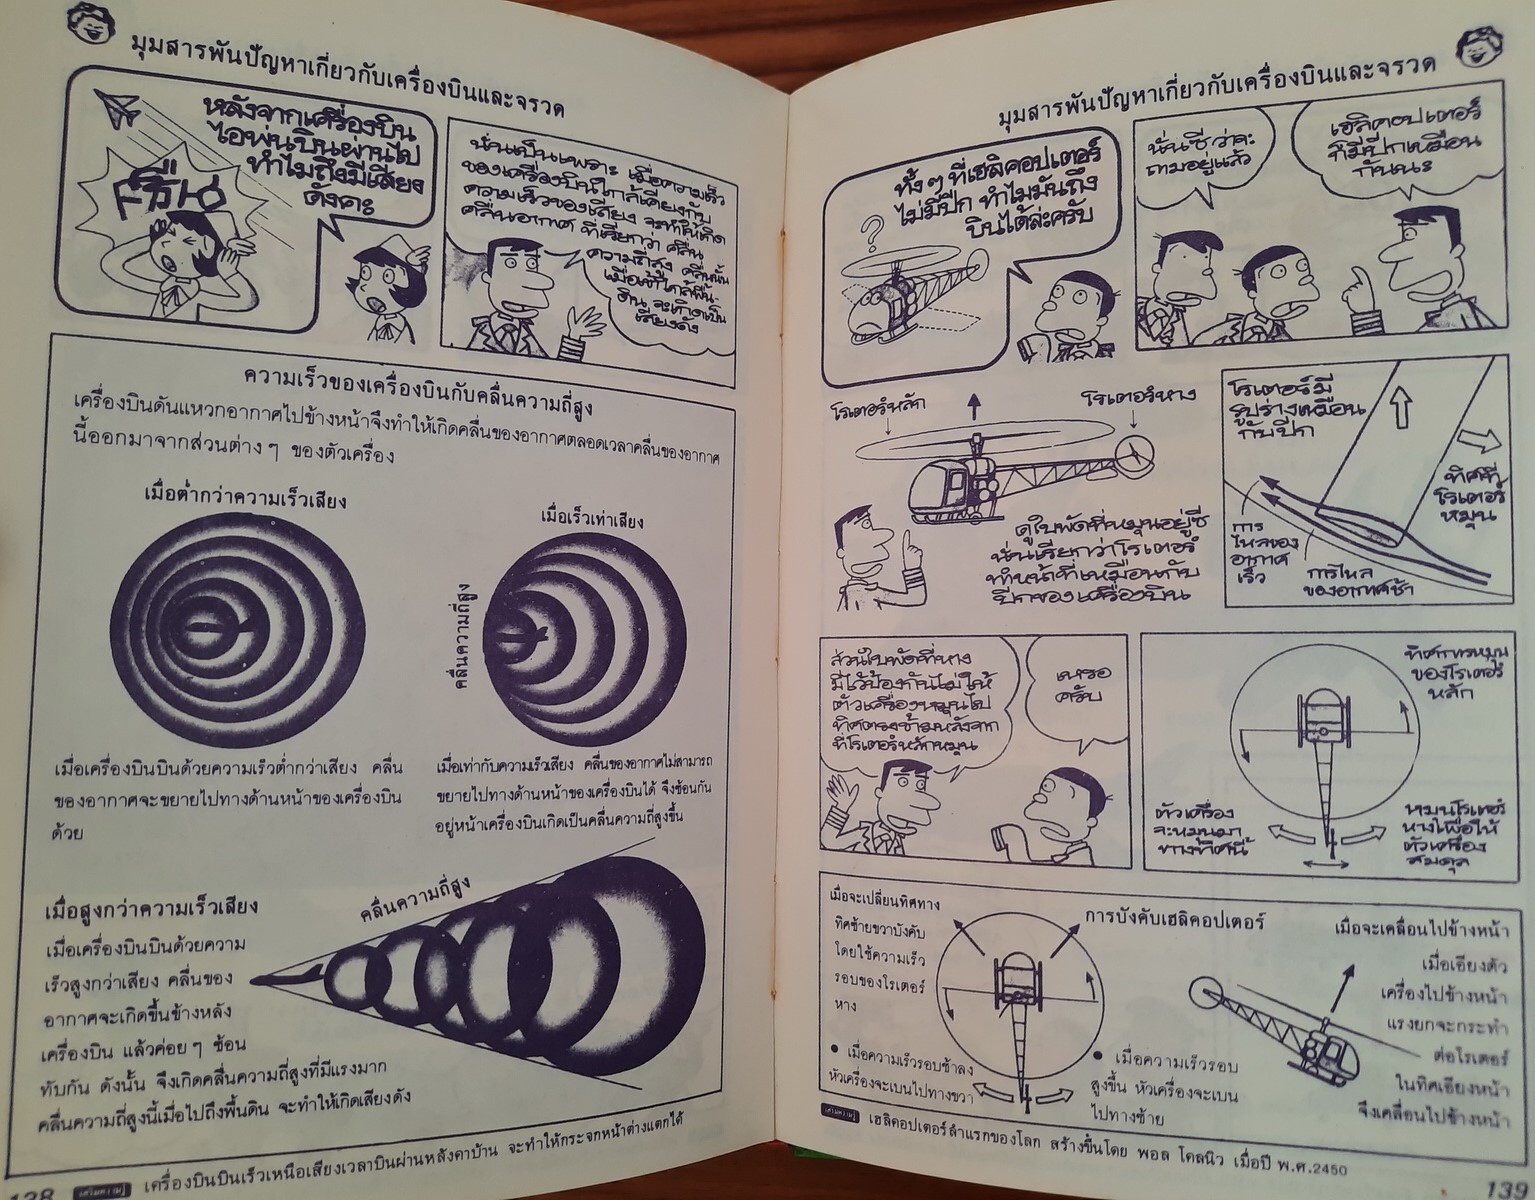 มุมสารพันปัญหาเกี่ยวกับเครื่องบินและจรวด
หลังจากเครื่องบิน
ไอพ่นบินผ่านไป
ทำไมถึงมีเสียง
ดังคะ
นั่นเป็นเพราะ เมื่อความเร็ว
ของเครื่องบินใกล้เคียงกับ
ความเร็วของเสียง จะทำให้เกิด
คลื่นอากาศ ที่เรียกว่า คลื่น
ความถี่สูง คลื่นนั้น
เมื่อเข้าใกล้พื้น
ดิน จะเกิดเป็น
เสียงดัง
ความเร็วของเครื่องบินกับคลื่นความถี่สูง
เครื่องบินดันแหวกอากาศไปข้างหน้าจึงทำให้เกิดคลื่นของอากาศตลอดเวลาคลื่นของอากาศ
นี้ออกมาจากส่วนต่าง ๆ ของตัวเครื่อง
เมื่อต่ำกว่าความเร็วเสียง
เมื่อเร็วเท่าเสียง
คลื่นความถี่สูง
เมื่อเครื่องบินบินด้วยความเร็วต่ำกว่าเสียง คลื่น
ของอากาศจะขยายไปทางด้านหน้าของเครื่องบิน
ด้วย
เมื่อเท่ากับความเร็วเสียง คลื่นของอากาศไม่สามารถ
ขยายไปทางด้านหน้าของเครื่องบินได้ จึงซ้อนกัน
อยู่หน้าเครื่องบินเกิดเป็นคลื่นความถี่สูงขึ้น
เมื่อสูงกว่าความเร็วเสียง
คลื่นความถี่สูง
เมื่อเครื่องบินบินด้วยความ
เร็วสูงกว่าเสียง คลื่นของ
อากาศจะเกิดขึ้นข้างหลัง
เครื่องบิน แล้วค่อย ๆ ซ้อน
ทับกัน ดังนั้น จึงเกิดคลื่นความถี่สูงที่มีแรงมาก
คลื่นความถี่สูงนี้เมื่อไปถึงพื้นดิน จะทำให้เกิดเสียงดัง
138 เสริมความรู้ เครื่องบินบินเร็วเหนือเสียงเวลาบินผ่านหลังคาบ้าน จะทำให้กระจกหน้าต่างแตกได้
มุมสารพันปัญหาเกี่ยวกับเครื่องบินและจรวด
ทั้ง ๆ ที่เฮลิคอปเตอร์
ไม่มีปีก ทำไมมันถึง
บินได้ล่ะครับ
?
นั่นซี ว่าจะ
ถามอยู่แล้ว
เฮลิคอปเตอร์
ก็มีปีกเหมือน
กันนะ
โรเตอร์หลัก
โรเตอร์หาง
ดูใบพัดที่หมุนอยู่ซี
นั่นเรียกว่าโรเตอร์
ทำหน้าที่เหมือนกับ
ปีกของเครื่องบิน
โรเตอร์มี
รูปร่างเหมือน
กับปีก
ทิศที่
โรเตอร์
หมุน
การ
ไหลของ
อากาศ
เร็ว
การไหล
ของอากาศช้า
ส่วนใบพัดที่หาง
มีไว้ป้องกันไม่ให้
ตัวเครื่องหมุนไป
ทิศตรงข้ามหลังจาก
ที่โรเตอร์หลักหมุน
เหรอ
ครับ
ทิศการหมุน
ของโรเตอร์
หลัก
ตัวเครื่อง
จะหมุนมา
ทางทิศนี้
หมุนโรเตอร์
หางเพื่อให้
ตัวเครื่อง
สมดุล
การบังคับเฮลิคอปเตอร์
เมื่อจะเปลี่ยนทิศทาง
ทิศซ้ายขวาบังคับ
โดยใช้ความเร็ว
รอบของโรเตอร์
หาง
● เมื่อความเร็วรอบช้าลง
หัวเครื่องจะเบนไปทางขวา
● เมื่อความเร็วรอบ
สูงขึ้น หัวเครื่องจะเบน
ไปทางซ้าย
เมื่อจะเคลื่อนไปข้างหน้า
เมื่อเอียงตัว
เครื่องไปข้างหน้า
แรงยกจะกระทำ
ต่อโรเตอร์
ในทิศเอียงหน้า
จึงเคลื่อนไปข้างหน้า
เสริมความรู้ เฮลิคอปเตอร์ลำแรกของโลก สร้างขึ้นโดย พอล โคลนิว เมื่อปี พ.ศ.2450
139